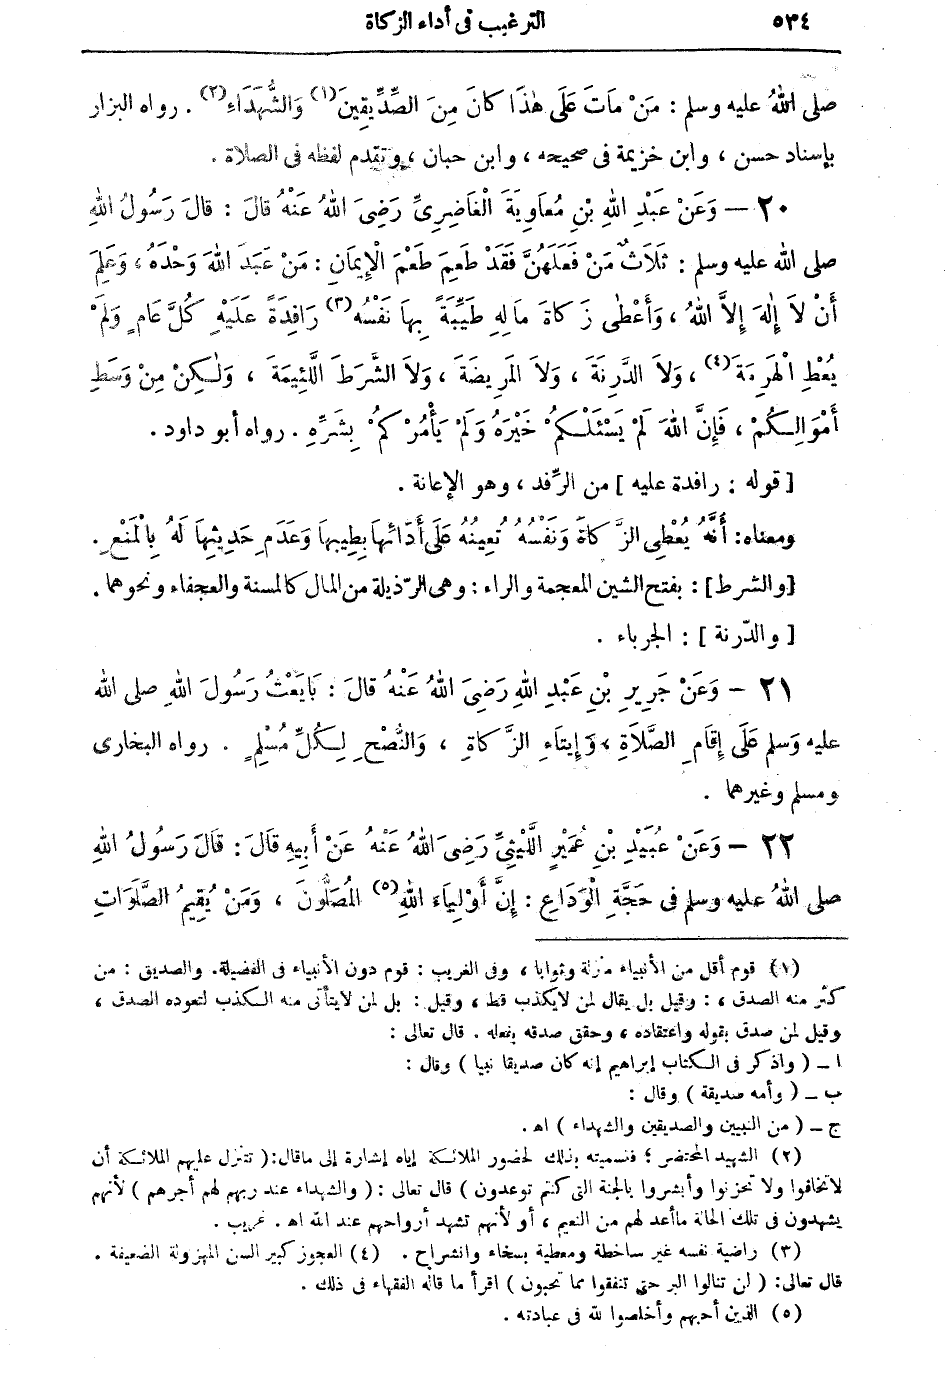 ٥٣٤ الترغيب فى أداء الزكاة
صلى اللهُ عليه وسلم : مَنْ مَاتَ عَلَى هٰذَا كانَ مِنَ الصِّدِّيقِينَ(١) وَالشُّهَدَاءِ(٢) . رواه البزار
بإسناد حسن ، وابن خزيمة فى صحيحه ، وابن حبان ، وتقدم لفظه فى الصلاة .
٢٠ — وَعَنْ عَبْدِ اللهِ بْنِ مُعَاوِيَةَ الْغَاضِرِىِّ رَضِىَ اللهُ عَنْهُ قالَ : قالَ رَسُولُ اللهِ
صلى الله عليه وسلم : ثَلَاثٌ مَنْ فَعَلَهُنَّ فَقَدْ طَعِمَ طَعْمَ الْإِيمَانِ : مَنْ عَبَدَ اللهَ وَحْدَهُ ، وَعَلِمَ
أَنْ لاَ إِلٰهَ إِلاَّ اللهُ ، وَأَعْطٰى زَكَاةَ مَالِهِ طَيِّبَةً بِهَا نَفْسُهُ(٣) رَافِدَةً عَلَيْهِ كُلَّ عَامٍ وَلَمْ
يُعْطِ الْهَرِمَةَ(٤) ، وَلاَ الدَّرِنَةَ ، وَلاَ المَرِيضَةَ ، وَلاَ الشَّرَطَ اللَّئِيمَةَ ، وَلٰكِنْ مِنْ وَسَطِ
أَمْوَالِكُمْ ، فَإِنَّ اللهَ لَمْ يَسْئَلْكُمْ خَيْرَهُ وَلَمْ يَأْمُرْكُمْ بِشَرِّهِ . رواه أبو داود .
[ قوله : رافدة عليه ] من الرِّفد ، وهو الإعانة .
ومعناه: أَنَّهُ يُعْطِى الزَّكاةَ وَنَفْسُهُ تُعِينُهُ عَلَى أَدَائِهَا بِطِيبِهَا وَعَدَمِ حَدِيثِهَا لَهُ بِالْمَنْعِ .
[والشرط] : بفتح الشين المعجمة والراء : وهى الرّذيلة من المال كالمسنة والعجفاء ونحوهما .
[ والدّرنة ] : الجرباء .
٢١ — وَعَنْ جَرِيرِ بْنِ عَبْدِ اللهِ رَضِىَ اللهُ عَنْهُ قالَ : بَايَعْتُ رَسُولَ اللهِ صلى الله
عليه وَسلم عَلَى إِقَامِ الصَّلَاةِ ، وَإِيتَاءِ الزَّكاةِ ، وَالنُّصْحِ لِكُلِّ مُسْلِمٍ . رواه البخارى
ومسلم وغيرهما .
٢٢ — وَعَنْ عُبَيْدِ بْنِ عُمَيْرٍ اللَّيْثِىِّ رَضِىَ اللهُ عَنْهُ عَنْ أَبِيهِ قالَ : قالَ رَسُولُ اللهِ
صلى اللهُ عليه وسلم فى حَجَّةِ الْوَدَاعِ : إِنَّ أَوْلِيَاءَ اللهِ(٥) المُصَلُّونَ ، وَمَنْ يُقِيمُ الصَّلَوَاتِ
(١) قوم أقل من الأنبياء منزلة وثوابا ، وفى الغريب : قوم دون الأنبياء فى الفضيلة. والصديق : من
كثر منه الصدق ، : وقيل بل يقال لمن لايكذب قط ، وقيل : بل لمن لايتأتى منه الكذب لتعوده الصدق ،
وقيل لمن صدق بقوله واعتقاده ، وحقق صدقه بفعله . قال تعالى :
ا — ( واذكر فى الكتاب إبراهيم إنه كان صديقا نبيا ) وقال :
ب — ( وأمه صديقة ) وقال :
ج — ( من النبيين والصديقين والشهداء ) اه .
(٢) الشهيد المحتضر ؛ فتسميته بذلك لحضور الملائكة إياه إشارة إلى ماقال:( تتنزل عليهم الملائكة أن
لاتخافوا ولا تحزنوا وأبشروا بالجنة التى كنتم توعدون ) قال تعالى :( والشهداء عند ربهم لهم أجرهم ) لأنهم
يشهدون فى تلك الحالة ماأعد لهم من النعيم ، أو لأنهم تشهد أرواحهم عند الله اه . غريب .
(٣) راضية نفسه غير ساخطة ومعطية بسخاء وانشراح . (٤) العجوز كبير السن المهزولة الضعيفة .
قال تعالى: ( لن تنالوا البر حتى تنفقوا مما تحبون ) اقرأ ما قاله الفقهاء فى ذلك .
(٥) الذين أحبهم وأخلصوا لله فى عبادته .